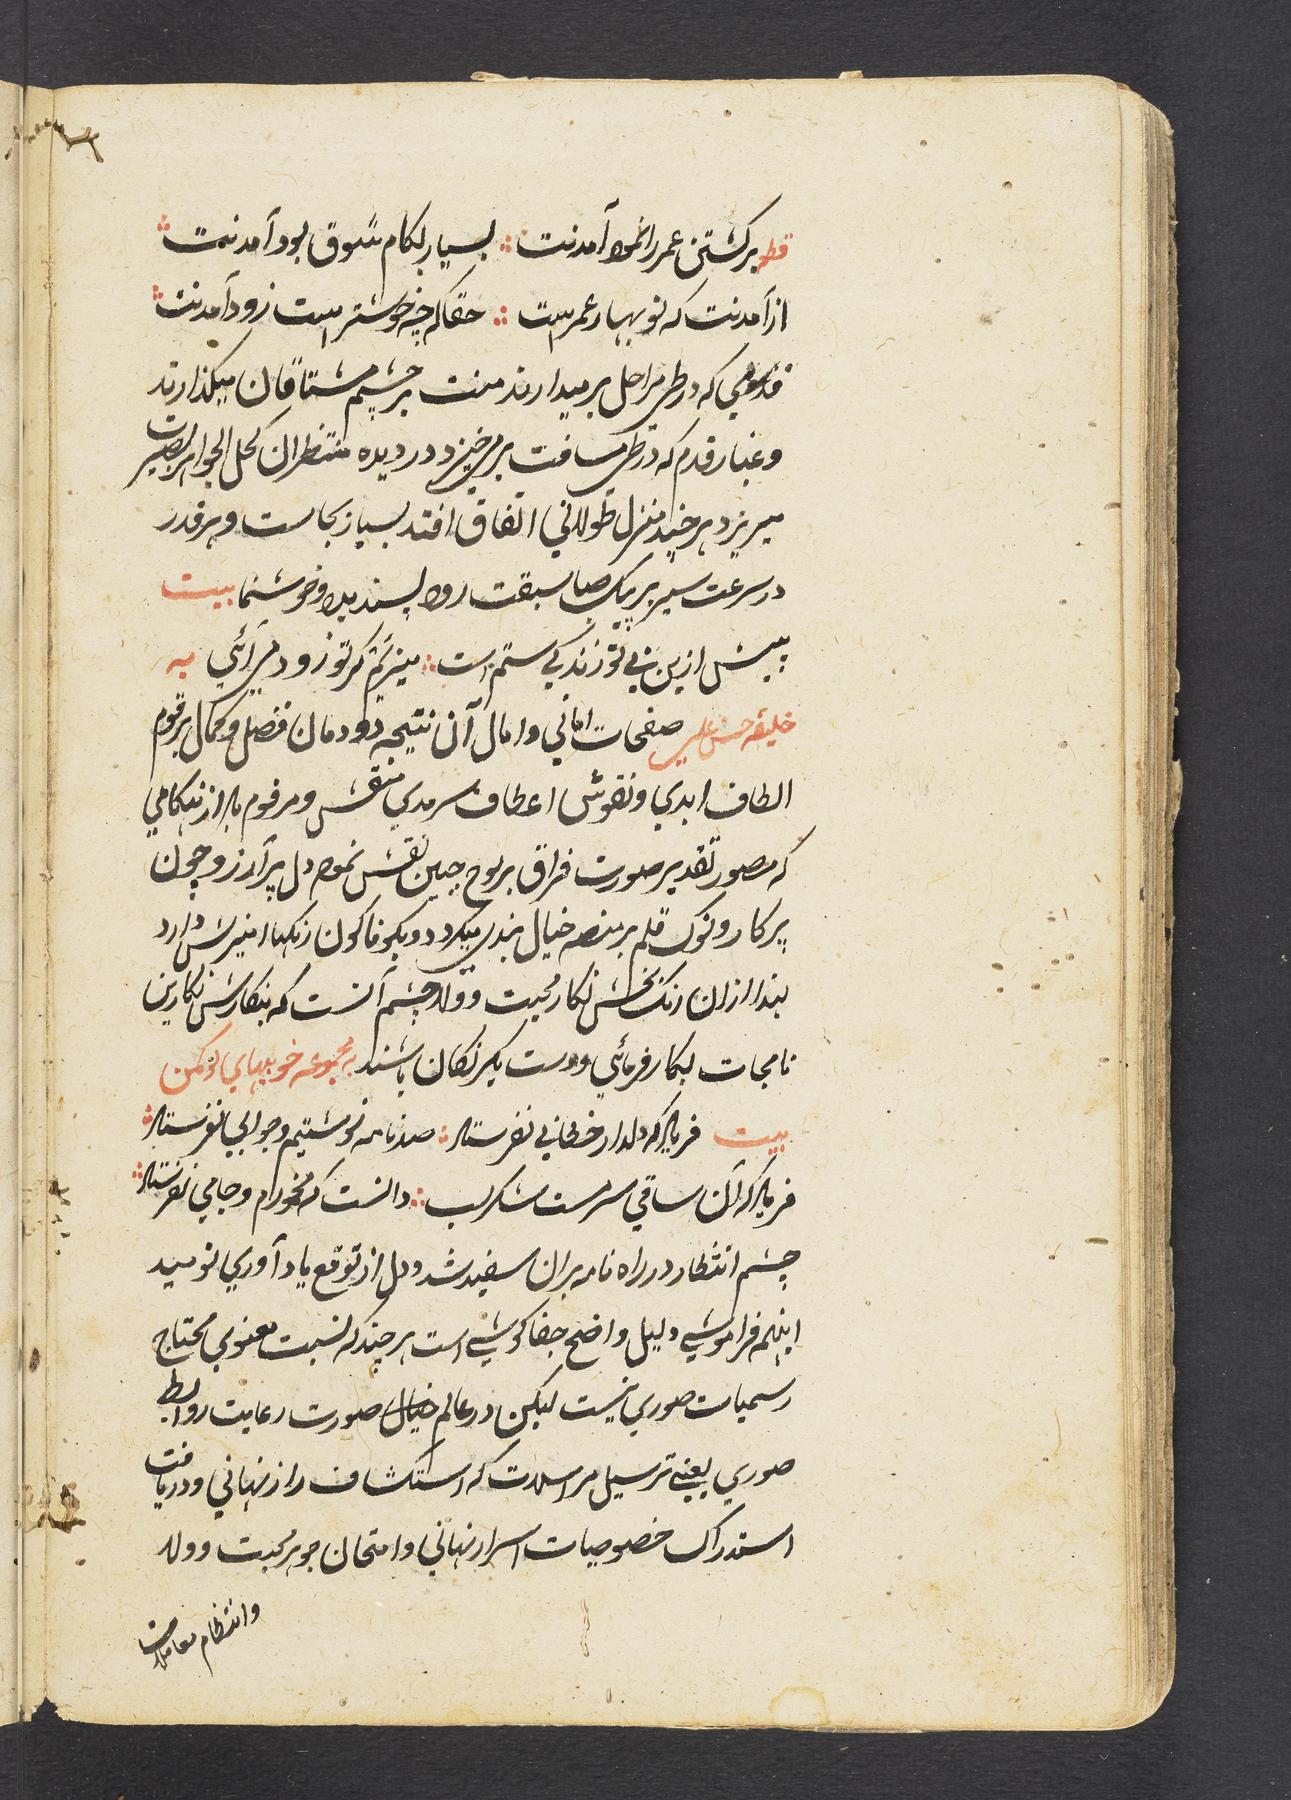 قطعه برگشتن عمر را نمود آمدنت ؛ بسیار بکام شوق بود آمدنت
از آمدنت که نوبهار عمر است ؛ حقا که چه خوشتر است زود آمدنت
قدومی که در طی مراحل برمیدارند منت بر چشم مشتاقان میگذارند
و غبار قدم که در طی مسافت برمیخیزد در دیده منتظران کحل الجواهر بصیرت
میریزد هر چند منزل طولانی اتفاق افتد بسیار بجاست و هر قدر
در سرعت سیر بر پیک صبا سبقت رود پسندیده و خوشنما بیت
پیش ازین بی تو زندگی ستم است ؛ میزیم گر تو زود می آئی به
خلیفه حسن علی صفحات امانی و امال آن نتیجه دودمان فضل و کمال برقوم
الطاف ابدی و نقوش اعطاف سرمدی منقش و مرقوم باد از هنگامی
که مصور تقدیر صورت فراق بر لوح جبین نقش نموده دل پر آرزو چون
پرکار و نوک قلم بر منصه خیال بندی میگردد و بگوناگون رنگها امیزش دارد
لهذا ازان رنگ بخش نگار محبت و ولا چشم آنست که بنگارش نگارین
نامجات بکار فرمائی دوست یکرنگان باشند به مجموعه خوبیهای
بیت فریاد که دلدار خطائی نفرستاد ؛ صد نامه نوشتیم و جوابی نفرستاد
فریاد که آن ساقی سرمست شکر لب ؛ دانست که مخمورم و جامی نفرستاد
چشم انتظار در راه نامه بران سفید شد و دل از توقع یاد آوری نومید
اینهم فراموشی دلیل واضح جفا کوشی است هر چند که نسبت معنوی محتاج
رسمیات صوری نیست لیکن در عالم خیال صورت رعایت روابط
صوری یعنی ترسیل مراسلات که استکشاف راز نهانی و دریافت
استدراک خصوصیات اسرار نهانی و امتحان جوهر محبت و ولا
و انتظام معاملات